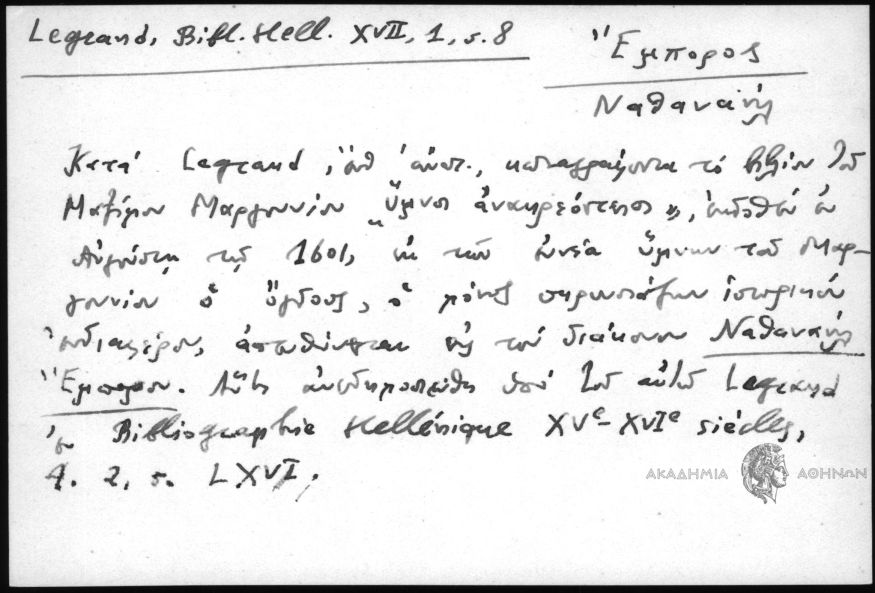 Legrand, Bibl. Hell. XVII, 1, σ. 8
Ἔμπορος
Ναθαναήλ
Κατά Legrand, ἔνθ' ἀνωτ., καταγράφοντα τό βιβλίον τοῦ
Μαξίμου Μαργουνίου „Ὕμνοι ἀνακρεόντειοι», ἐκδοθέν ἐν
Αὐγούστῃ τῷ 1601, ἐκ τῶν ἐννέα ὕμνων τοῦ Μαρ-
γουνίου ὁ ὄγδοος, ὁ μόνος παρουσιάζων ἱστορικόν
ἐνδιαφέρον, ἀπευθύνεται εἰς τόν διάκονον Ναθαναήλ
Ἔμπορον. ἀνεδημοσιεύθη ὑπό τοῦ αὐτοῦ Legrand
ἐν Bibliographie Hellénique XVe-XVIe siècles,
τ. 2, σ. LXVI.
ΑΚΑΔΗΜΙΑ ΑΘΗΝΩΝ